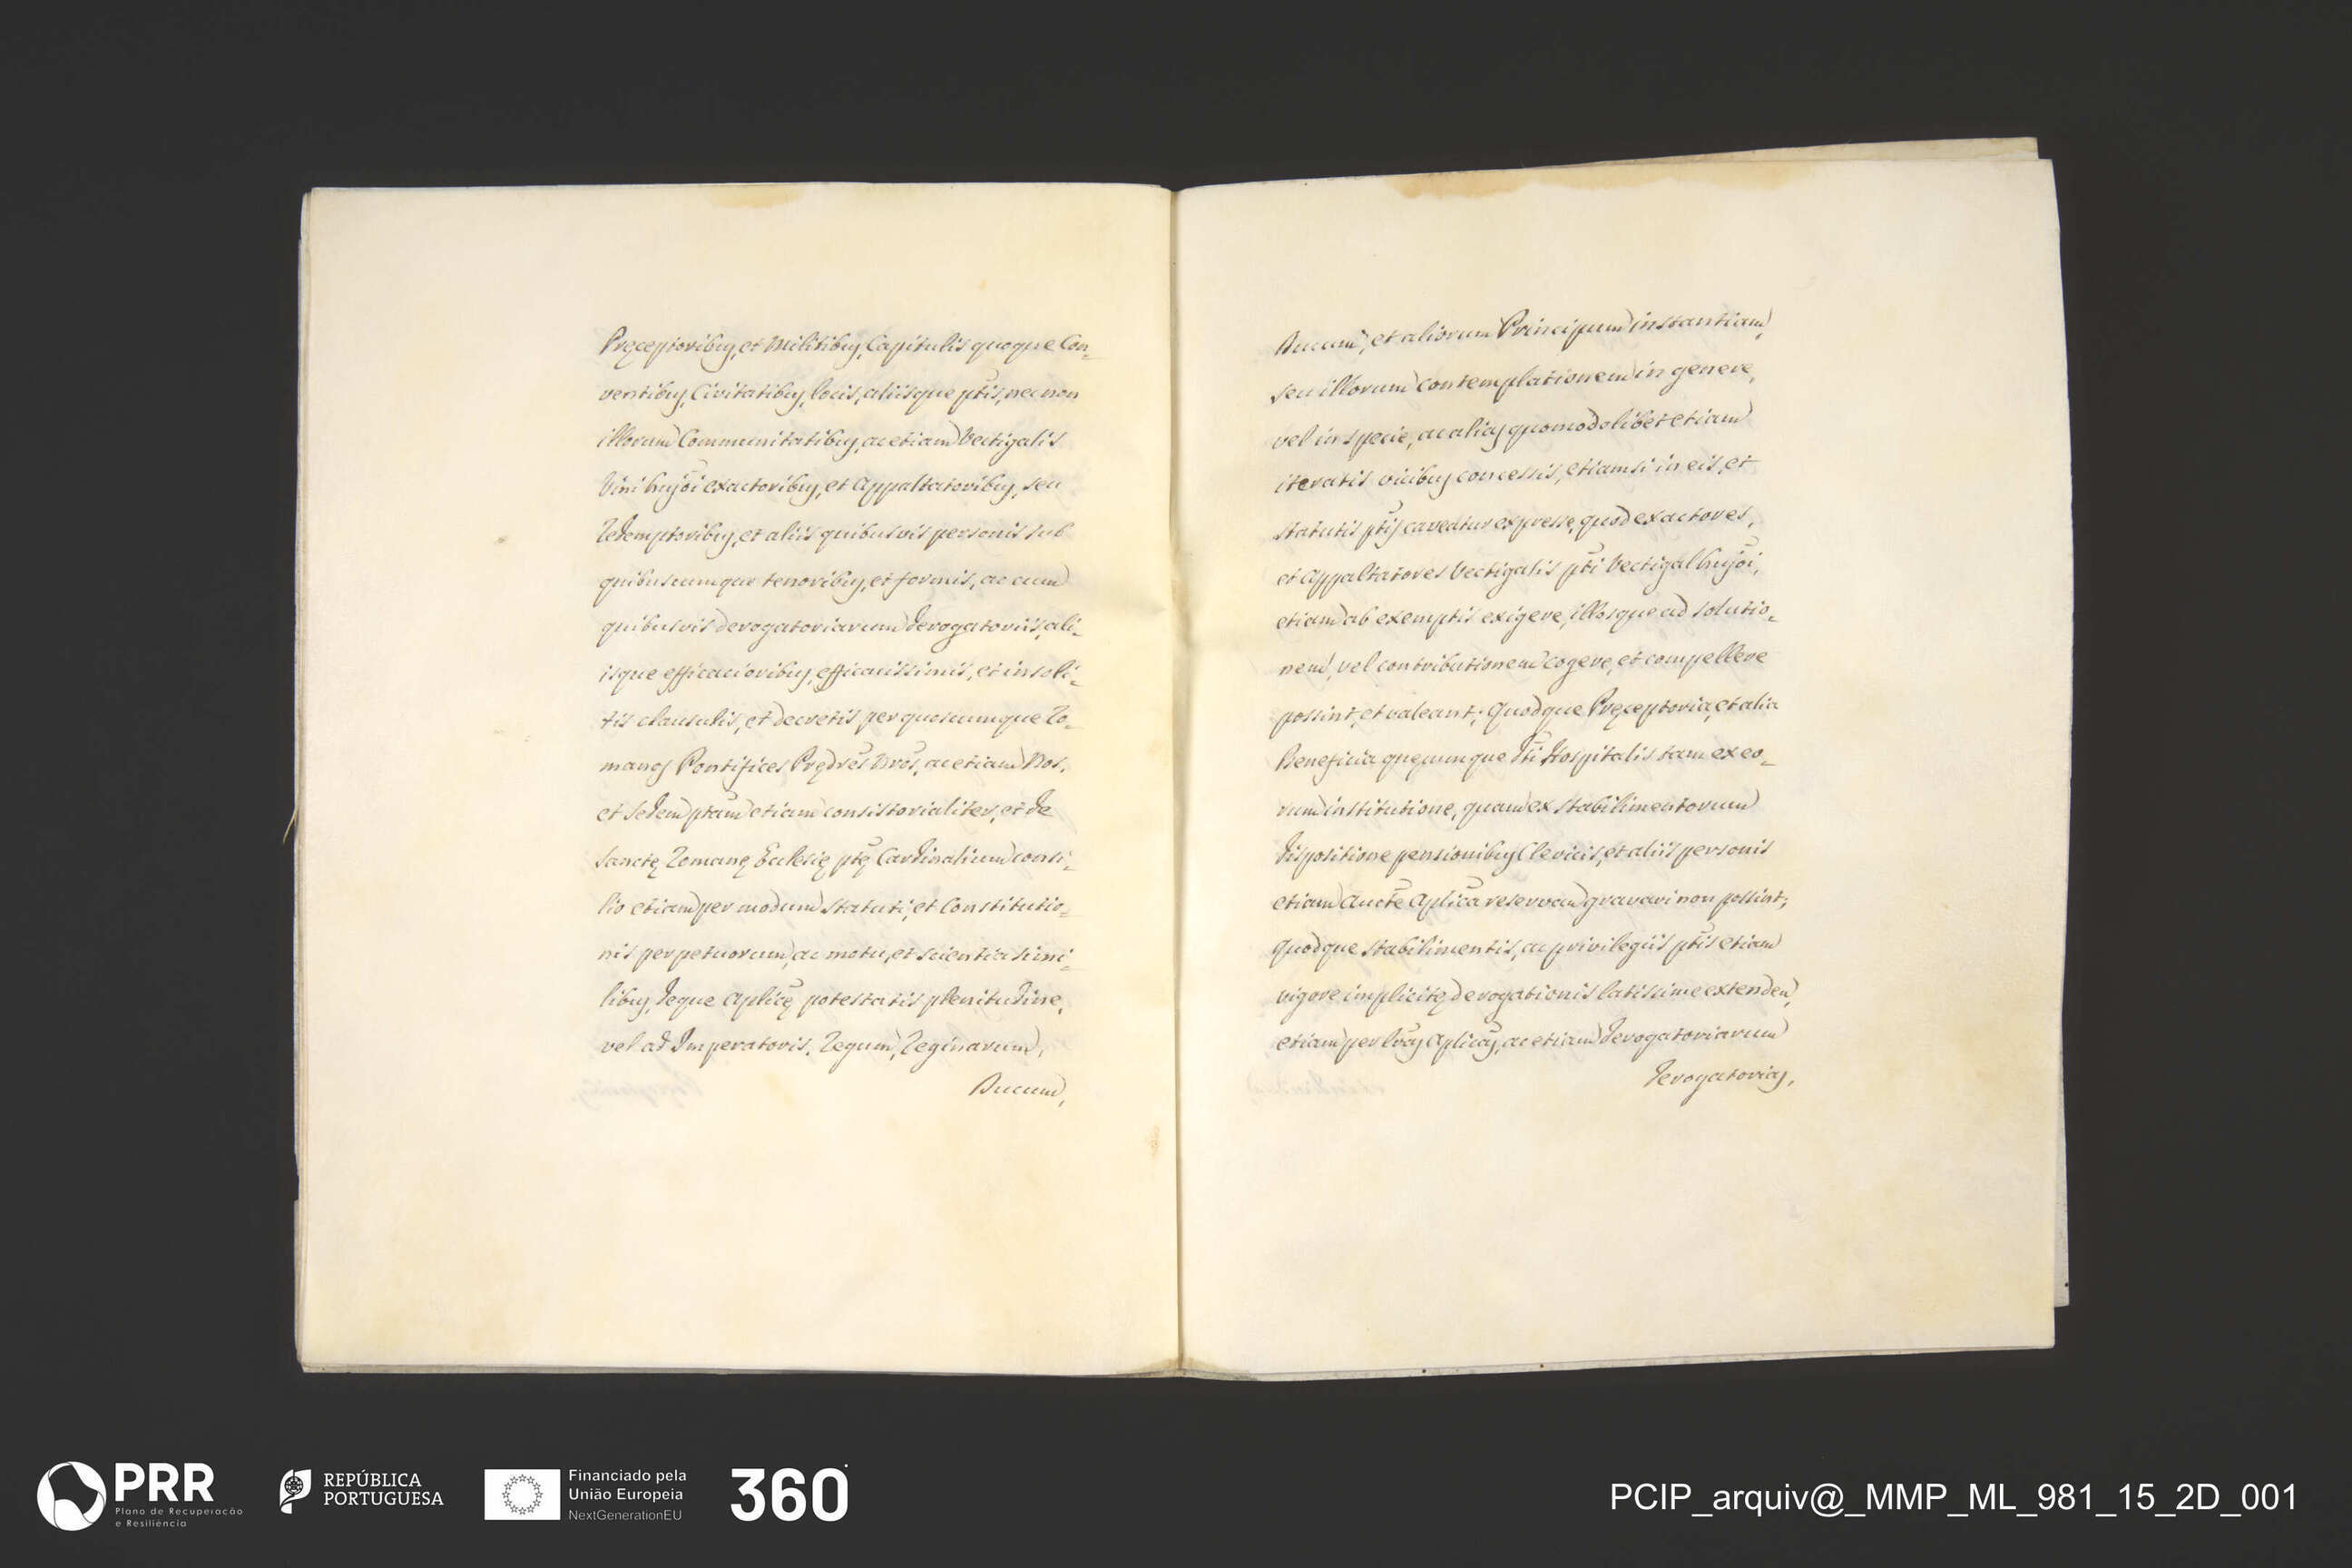 Pręceptoribus, et Militibus, Capitulis quoque Con-
ventibus, Civitatibus, locis, aliisque ptis, necnon
illorum Communitatibus, ac etiam Vectigalis
Vini hujõi exactoribus, et Appaltatoribus, seu
Redemptoribus, et aliis quibusvis personis sub
quibuscumque tenoribus, et formis, ac cum
quibusvis derogatoriarum derogatoriis, ali-
isque efficacioribus, efficacissimis, et insoli-
tis clausulis, et decretis per quoscumque Ro-
manos Pontifices Prędres Nros, ac etiam Nos,
et Sedem ptam etiam consistorialiter, et de
Sanctę Romanę Ecclesię ptę Cardinalium consi-
lio etiam per modum Statuti, et Constitutio-
nis perpetuorum, ac motu, et scientia simi-
libus, deque Aplicę potestatis plenitudine,
vel ad Imperatoris, Regum, Reginarum,
Ducum,
Ducum, et aliorum Principum instantiam,
seu illorum contemplationem in genere,
vel in specie, ac alias quomodolibet etiam
iteratis vicibus concessis, etiamsi in eis, et
statutis ptis caveatur expresse, quod exactores,
et Appaltatores Vectigalis pti Vectigal hujõi,
etiam ab exemptis exigere, illosque ad solutio-
nem, vel contributionem cogere, et compellere
possint, et valeant; Quodque Pręceptoria, et alia
Beneficia quęcumque dti Hospitalis tam ex eo-
rum institutione, quam ex stabilimentorum
dispositione pensionibus Clericis, et aliis personis
etiam Aucte Aplica reservan gravari non possint;
Quodque stabilimentis, ac privilegiis ptis etiam
vigore implicitę derogationis latissime extenden,
etiam per lras Aplicas, ac etiam derogatoriarum
derogatorias,
PRR
Plano de Recuperação
e Resiliência
REPÚBLICA
PORTUGUESA
Financiado pela
União Europeia
NextGenerationEU
360
PCIP_arquiv@_MMP_ML_981_15_2D_001